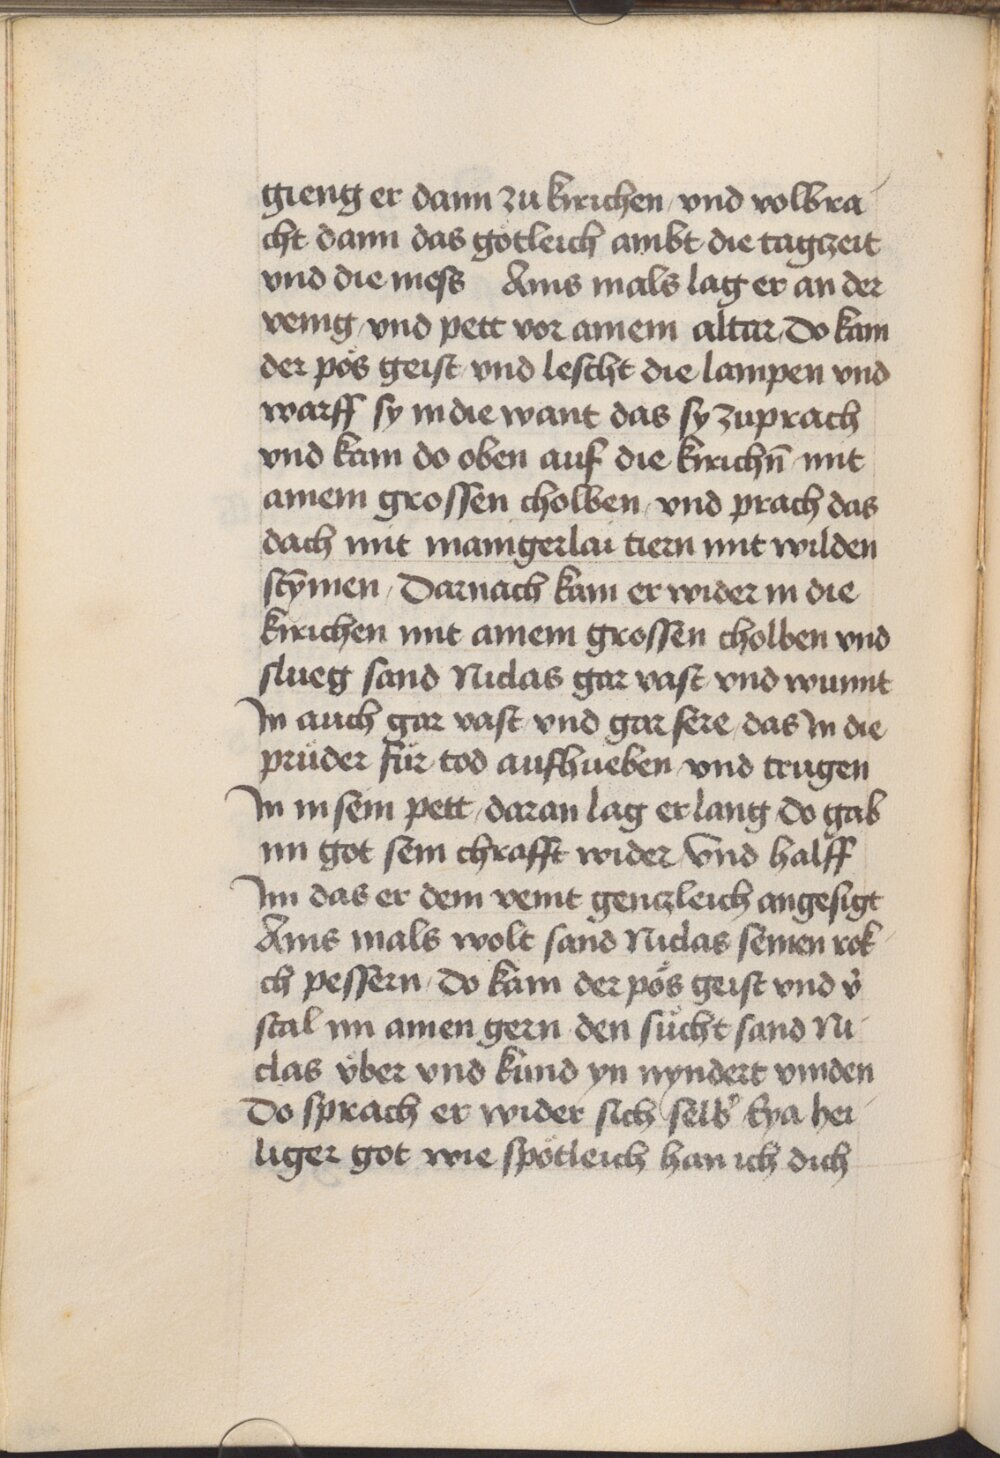 gieng er dann zu kirichen / vnd volbra
cht dann das gotleich ambt die tagzeit
vnd die mess Ains mals lag er an der
venig / vnd pett vor ainem altar / Do kam
der pös geist vnd lescht die lampen vnd
warff sy in die want das sy zuprach
vnd kam do oben auf die kirichn̄ mit
ainem grossen cholben / vnd prach das
dach mit maingerlai tiern mit wilden
stȳmen / Darnach kam er wider in die
kirichen mit ainem grossen cholben vnd
slueg sand Niclas gar vast vnd wunnt
In auch gar vast vnd gar sere / das In die
prüder für tod aufhueben / vnd trugen
In in sein pett / daran lag er lang / Do gab
im got sein chrafft wider / Vnd halff
Im das er dem veint genczleich angesigt
Ains mals wolt sand Niclas seinen rok
ch pessern / Do kam der pös geist vnd v̓
stal im ainen gern den sücht sand Ni
clas v̈ber vnd kund yn nyndert vinden
Do sprach er wider sich selb̓ Eya hei
liger got wie spötleich han ich dich